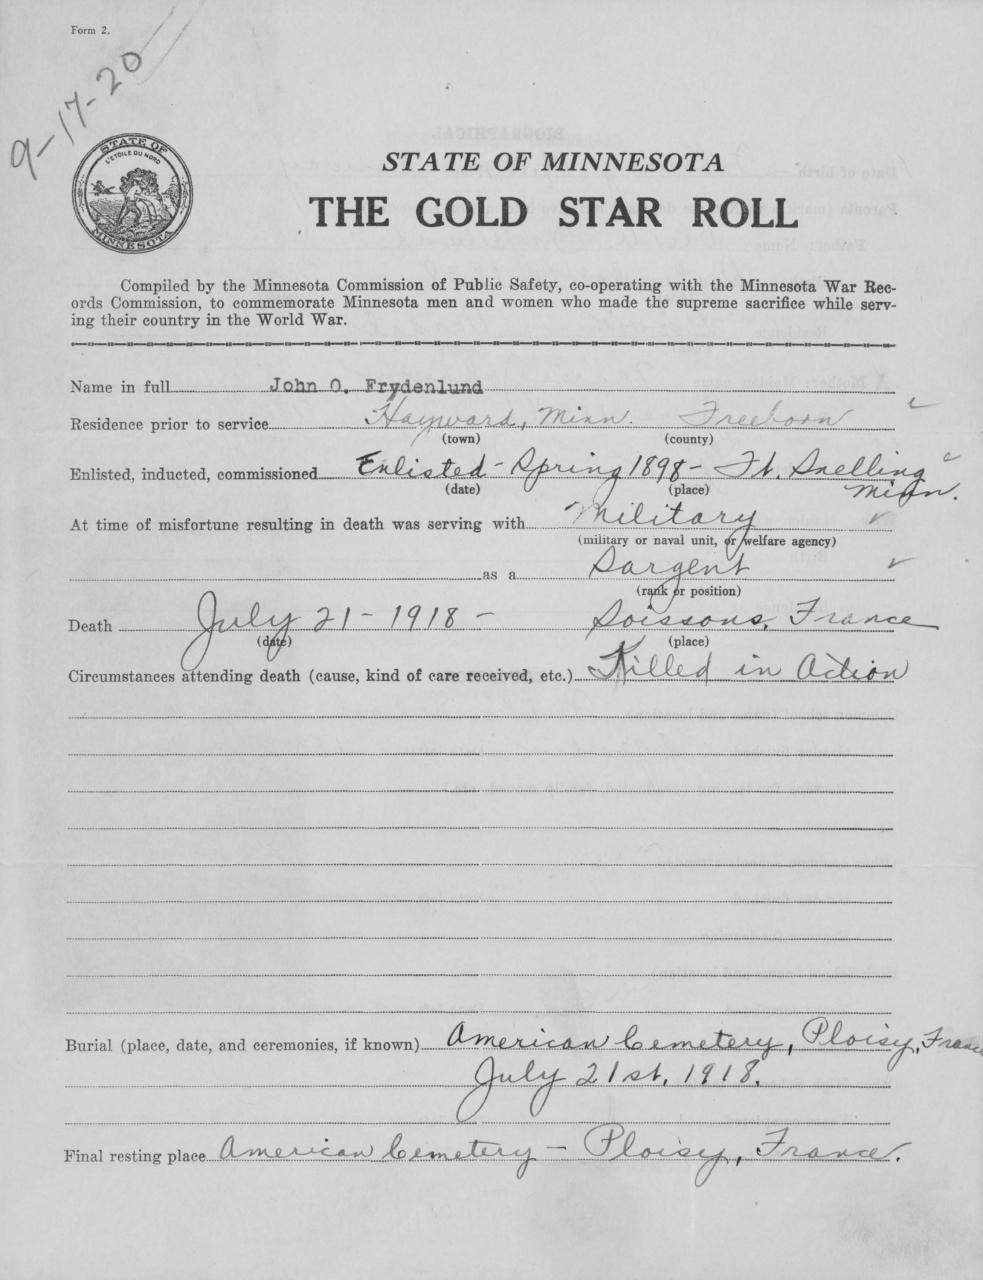 Form 2.
9-17-20
STATE OF
L'ETOILE DU NORD
MINNESOTA
STATE OF MINNESOTA
THE GOLD STAR ROLL
Compiled by the Minnesota Commission of Public Safety, co-operating with the Minnesota War Rec-
ords Commission, to commemorate Minnesota men and women who made the supreme sacrifice while serv-
ing their country in the World War.
Name in full John O. Frydenlund
Residence prior to service Hayward, Minn. Freeborn
(town) (county)
Enlisted, inducted, commissioned Enlisted - Spring 1898 - Ft. Snelling
(date) (place) Minn.
At time of misfortune resulting in death was serving with Military
(military or naval unit, or welfare agency)
as a Sargent
(rank or position)
Death July 21 - 1918 - Soissons, France
(date) (place)
Circumstances attending death (cause, kind of care received, etc.) Killed in Action
Burial (place, date, and ceremonies, if known) American Cemetery, Ploisy, France
July 21st, 1918.
Final resting place American Cemetery - Ploisy, France.